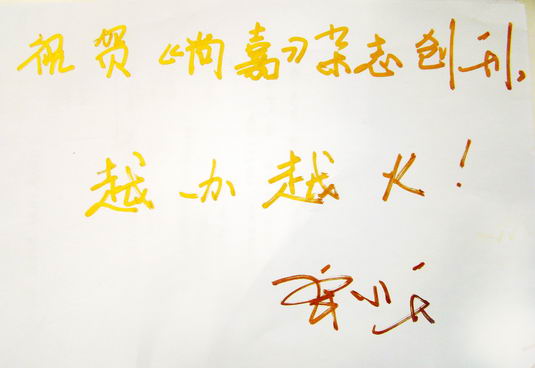 祝贺《尚嘉》杂志创刊,
越办越火!